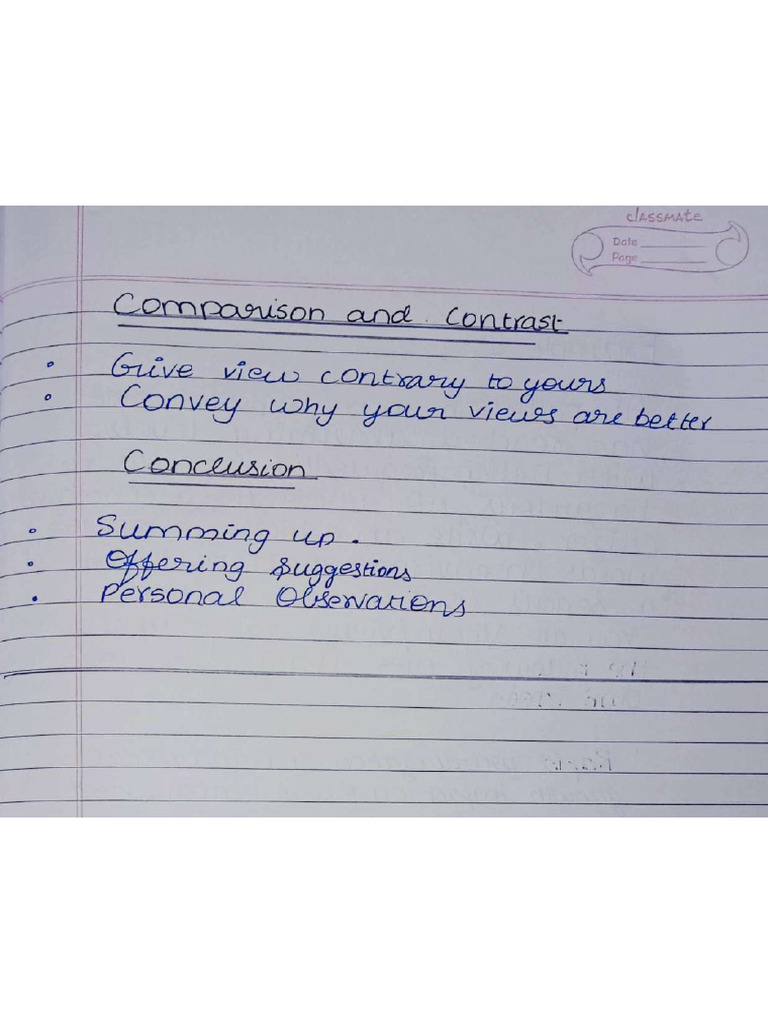 classmate
Date
Page
Comparison and Contrast
• Give view contrary to yours
• Convey why your views are better
Conclusion
• Summing up.
• Offering suggestions
• Personal Observations